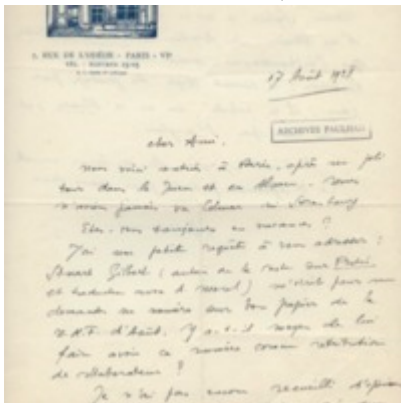 7, RUE DE L'ODÉON - PARIS - VIᵉ
TÉL.
17 Août 1928
ARCHIVES PAULHAN
cher Ami,
nous voici rentrés à Paris, après un joli
tour dans le Jura et en Alsace. nous
n'avions jamais vu Colmar ni Strasbourg
Êtes-vous toujours en vacances ?
J'ai une petite requête à vous adresser :
Stuart Gilbert (auteur de la note sur
et traducteur m'écrit pour me
demander un numéro sur bon papier de la
N.R.F. d'Août. Y a-t-il moyen de lui
faire avoir ce numéro comme rétribution
de collaborateur ?
Je n'ai pas encore recueilli